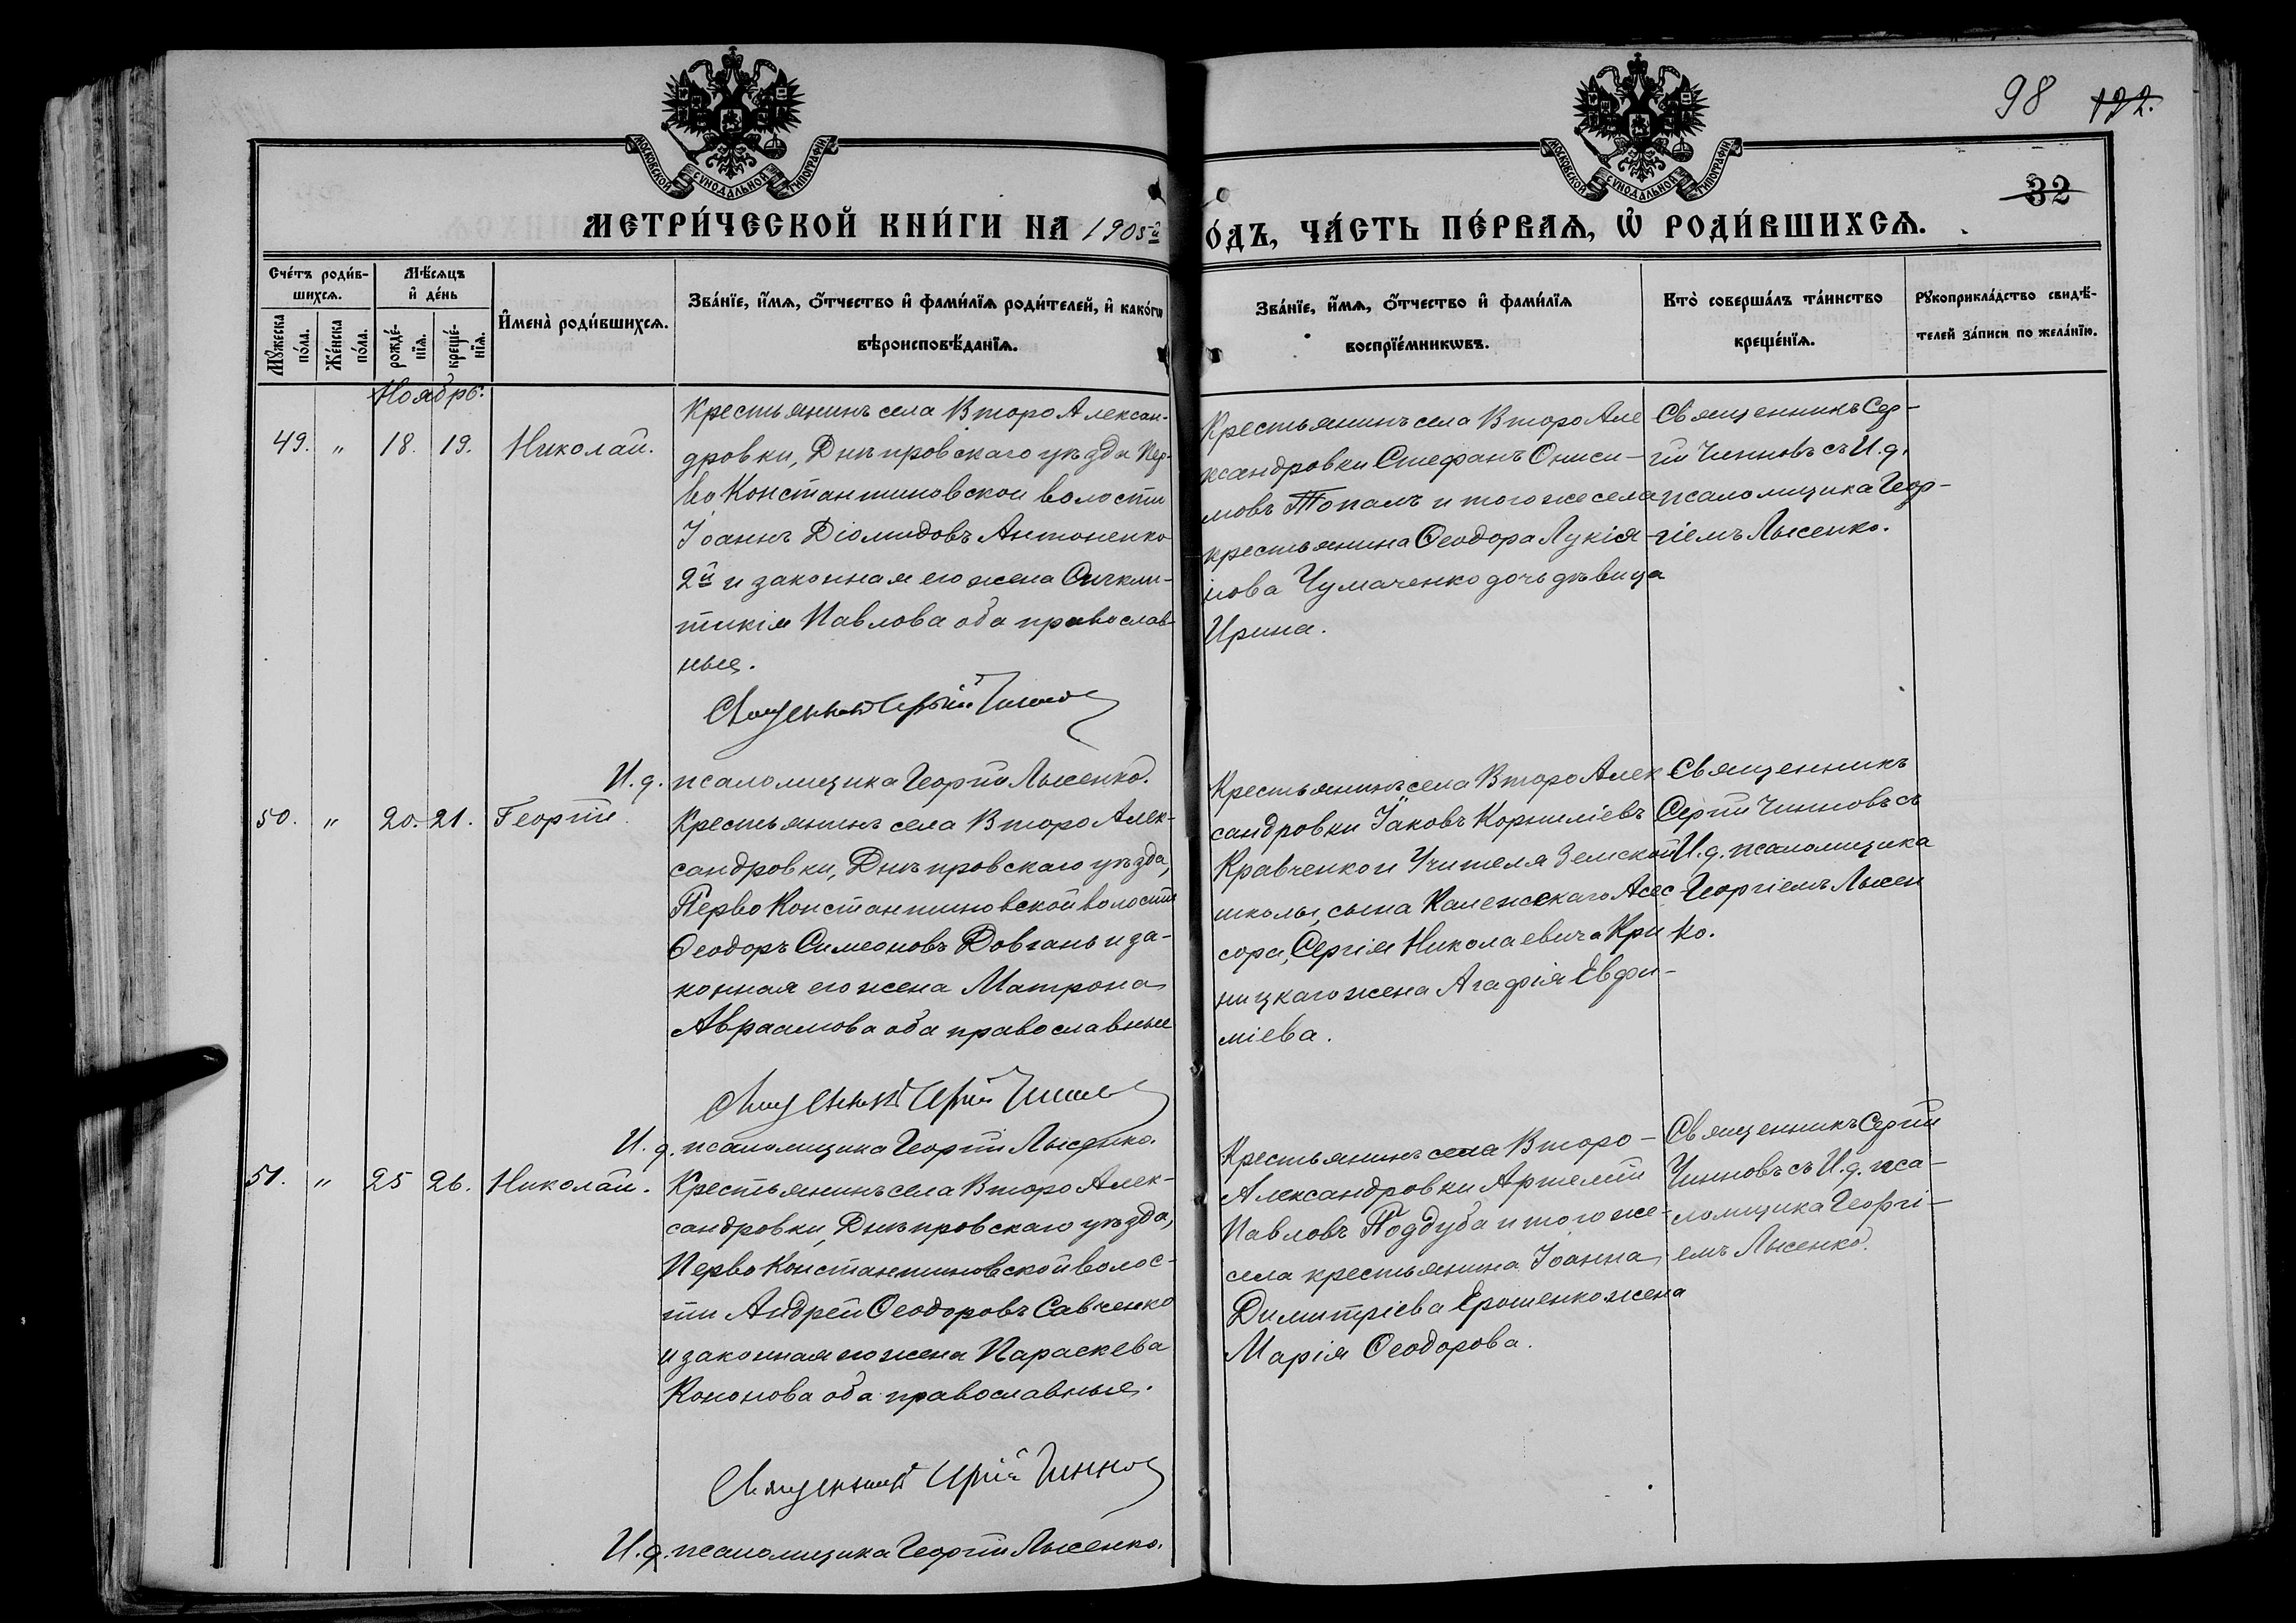 98 122.
32
МОСКОВСКОЙ СУНОДАЛЬНОЙ ТИПОГРАФІИ
МОСКОВСКОЙ СУНОДАЛЬНОЙ ТИПОГРАФІИ
МЕТРИ́ЧЕСКОЙ КНИ́ГИ НА 1905-й
О́ДЪ, ЧА́СТЬ ПЕ́РВАѦ, Ѽ РОДИ́ВШИХСѦ.
Сче́тъ роди́в-
шихсѧ.
Мѣ́сѧцъ
и҆ де́нь
Мꙋ́жеска
по́ла.
Же́нска
по́ла.
рожде́-
нїѧ.
креще́-
нїѧ.
И҆мена̀ роди́вшихсѧ.
Зва́нїе, и҆́мѧ, ѻ҆́тчество и҆ фами́лїѧ роди́телей, и҆ како́гѡ
вѣроисповѣ́данїѧ.
Зва́нїе, и҆́мѧ, ѻ҆́тчество и҆ фами́лїѧ
воспрїе́мникѡвъ.
Кто̀ соверша́лъ та́инство
креще́нїѧ.
Рꙋкоприкла́дство свидѣ́-
телей за́писи по жела́нїю.
Ноябрь.
49. " 18. 19. Николай.
Крестьянинъ села Второ Алексан-
дровки, Днѣпровскаго уѣзда Пер-
во Константиновской волости
Іоаннъ Діомидовъ Антоненко
2й и законная его жена Синкли-
тикія Павлова оба православ-
ные.
Священникъ Сергій Чиннов
И. д. псаломщика Георгій Лысенко.
Крестьянинъ села Второ Але
ксандровки Стефанъ Ониси-
мовъ Топалъ и того же села
крестьянина Ѳеодора Лукія-
нова Чумаченко дочь дѣвица
Ирина.
Священникъ Сер-
гій Чинновъ съ И. д.
псаломщика Геор-
гіемъ Лысенко.
50. " 20. 21. Георгій.
Крестьянинъ села Второ Алек-
сандровки, Днѣпровскаго уѣзда,
Перво Константиновской волости
Ѳеодоръ Симеоновъ Довгань и за-
конная его жена Матрона
Авраамова оба православные
Священникъ Сергій Чиннов
И. д. псаломщика Георгій Лысенко.
Крестьянинъ села Второ Алек
сандровки Іаковъ Корниліевъ
Кравченко и Учителя Земской
школы, сына Коллежскаго Асес
сора, Сергія Николаевича Кри
ницкаго жена Агафія Евфи-
міева.
Священникъ
Сергій Чинновъ съ
И. д. псаломщика
Георгіемъ Лысен
ко.
51. " 25 26. Николай.
Крестьянинъ села Второ Алек-
сандровки, Днѣпровскаго уѣзда,
Перво Константиновской волос-
ти Андрей Ѳеодоровъ Савченко
и законная его жена Параскева
Кононова оба православные.
Священникъ Сергій Чиннов
И. д. псаломщика Георгій Лысенко.
Крестьянинъ села Второ-
Александровки Артемій
Павловъ Поддуба и того же
села крестьянина Іоанна
Димитріева Ерошенко жена
Марія Ѳеодорова.
Священникъ Сергій
Чинновъ съ И. д. пса-
ломщика Георгі-
емъ Лысенко.